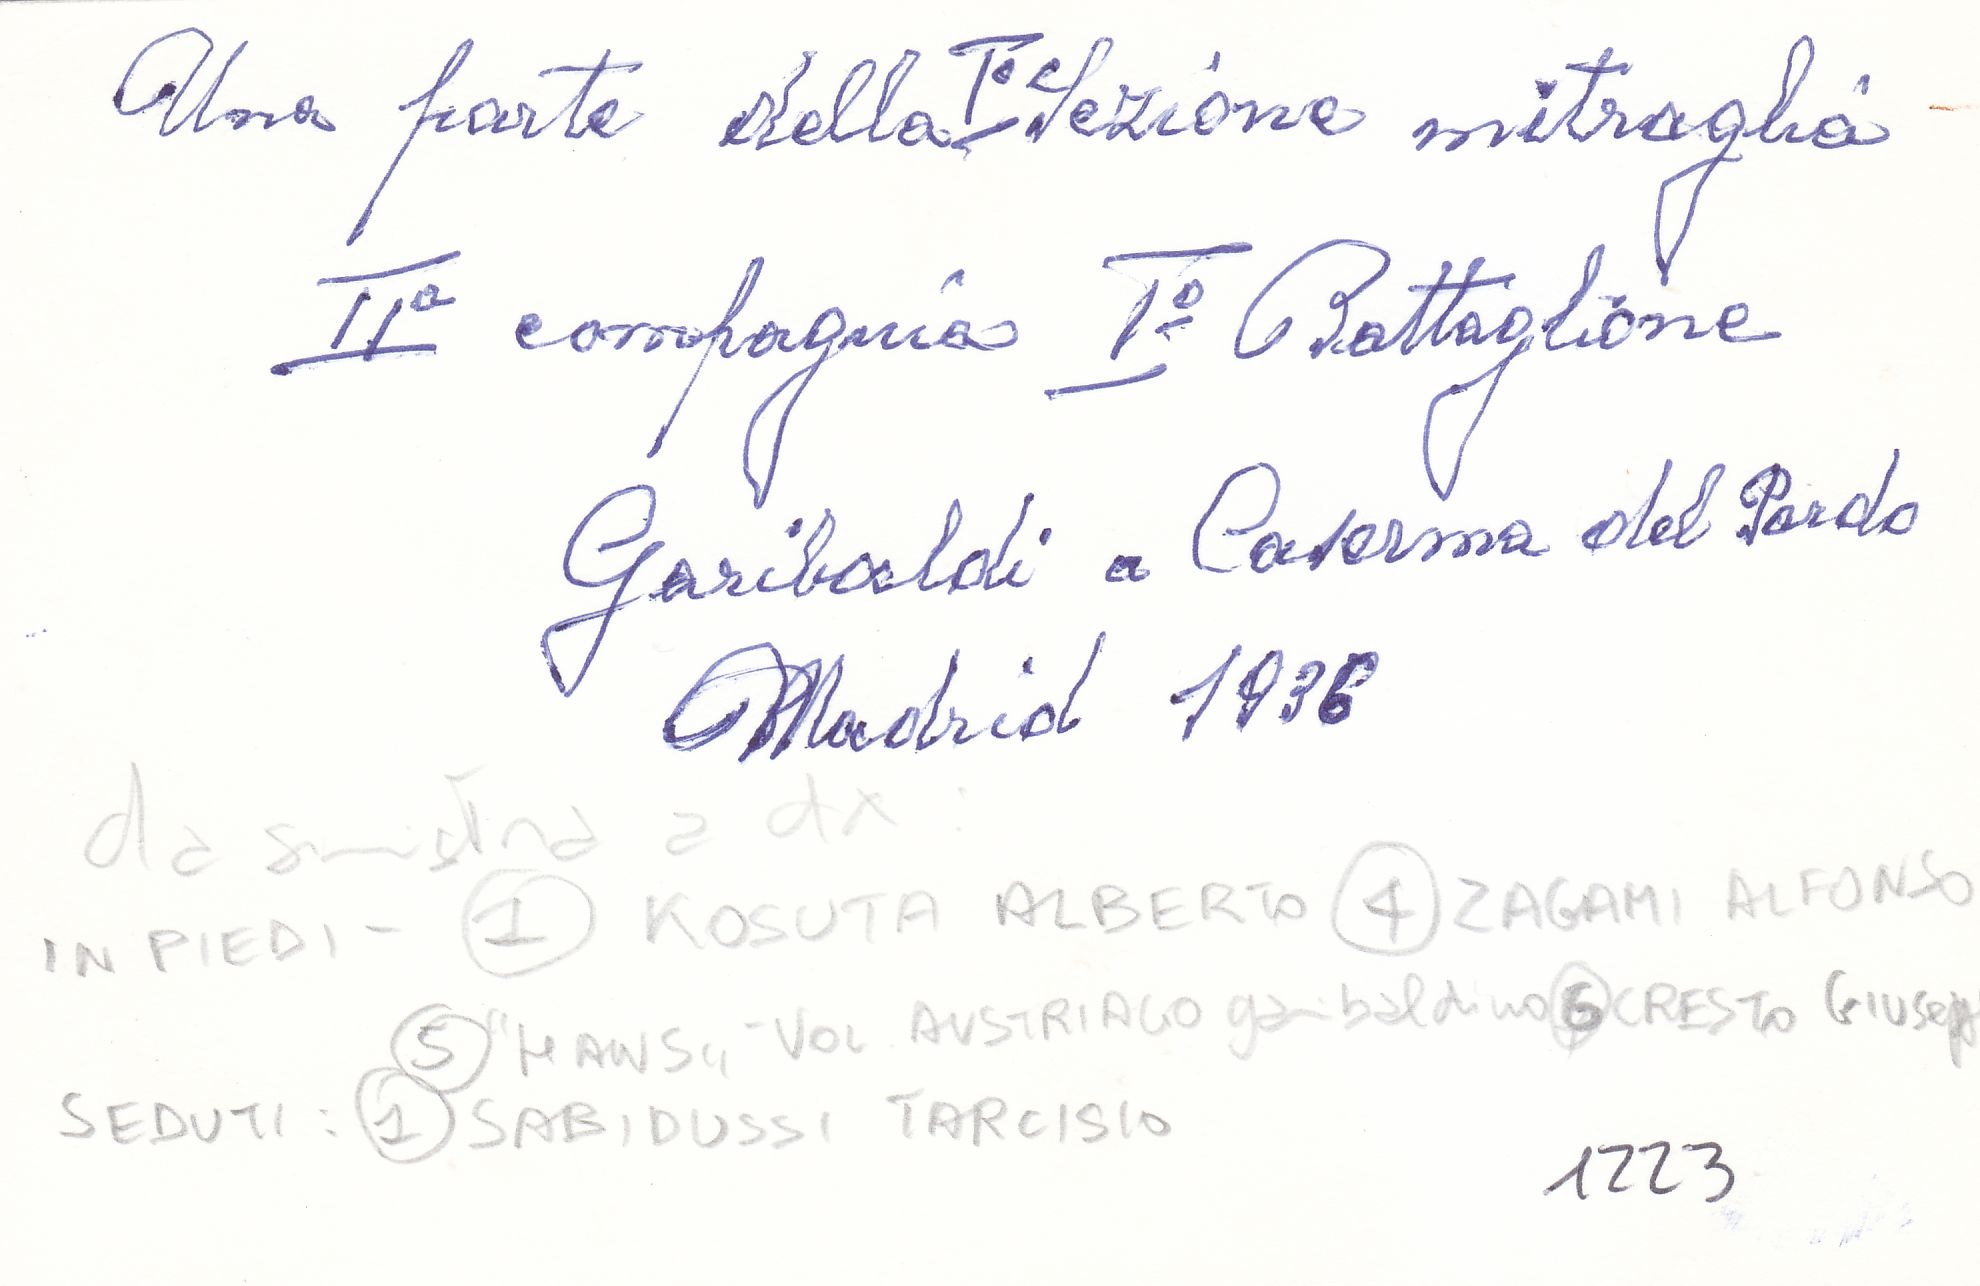 Una parte della Iª Sezione mitraglia
IIª compagnia Iº Battaglione
Garibaldi a Caserma del Pardo
Madrid 1936
da sinistra a dx:
IN PIEDI - 1 KOSUTA ALBERTO 4 ZAGAMI ALFONSO
5 "HANS" - VOL AUSTRIACO garibaldino 6 CRESTO GIUSEPP
SEDUTI: 1 SABIDUSSI TARCISIO
1223